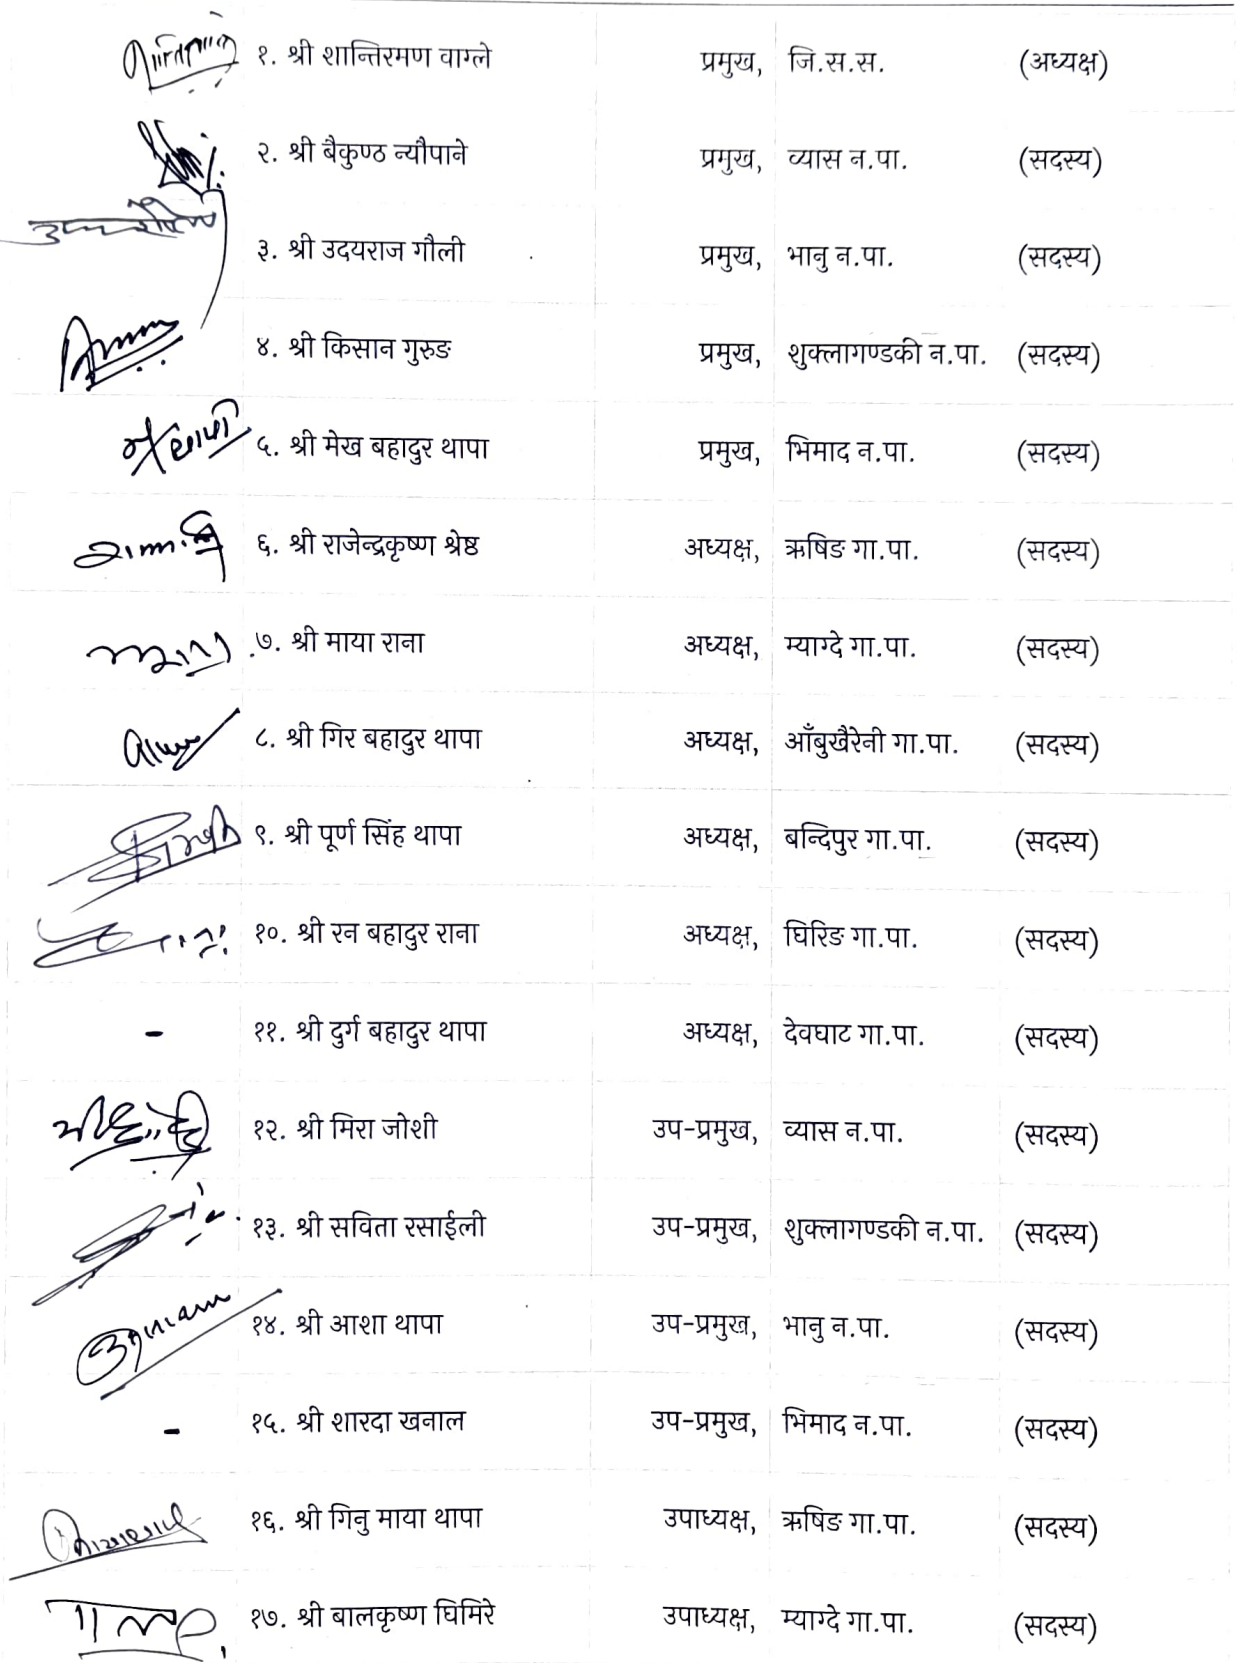 १. श्री शान्तिरमण वाग्ले प्रमुख, जि.स.स. (अध्यक्ष)
२. श्री बैकुण्ठ न्यौपाने प्रमुख, व्यास न.पा. (सदस्य)
३. श्री उदयराज गौली प्रमुख, भानु न.पा. (सदस्य)
४. श्री किसान गुरुङ प्रमुख, शुक्लागण्डकी न.पा. (सदस्य)
५. श्री मेख बहादुर थापा प्रमुख, भिमाद न.पा. (सदस्य)
६. श्री राजेन्द्रकृष्ण श्रेष्ठ अध्यक्ष, ऋषिङ गा.पा. (सदस्य)
७. श्री माया राना अध्यक्ष, म्याग्दे गा.पा. (सदस्य)
८. श्री गिर बहादुर थापा अध्यक्ष, आँबुखैरेनी गा.पा. (सदस्य)
९. श्री पूर्ण सिंह थापा अध्यक्ष, बन्दिपुर गा.पा. (सदस्य)
१०. श्री रन बहादुर राना अध्यक्ष, घिरिङ गा.पा. (सदस्य)
- ११. श्री दुर्ग बहादुर थापा अध्यक्ष, देवघाट गा.पा. (सदस्य)
१२. श्री मिरा जोशी उप-प्रमुख, व्यास न.पा. (सदस्य)
१३. श्री सविता रसाईली उप-प्रमुख, शुक्लागण्डकी न.पा. (सदस्य)
१४. श्री आशा थापा उप-प्रमुख, भानु न.पा. (सदस्य)
- १५. श्री शारदा खनाल उप-प्रमुख, भिमाद न.पा. (सदस्य)
१६. श्री गिनु माया थापा उपाध्यक्ष, ऋषिङ गा.पा. (सदस्य)
१७. श्री बालकृष्ण घिमिरे उपाध्यक्ष, म्याग्दे गा.पा. (सदस्य)